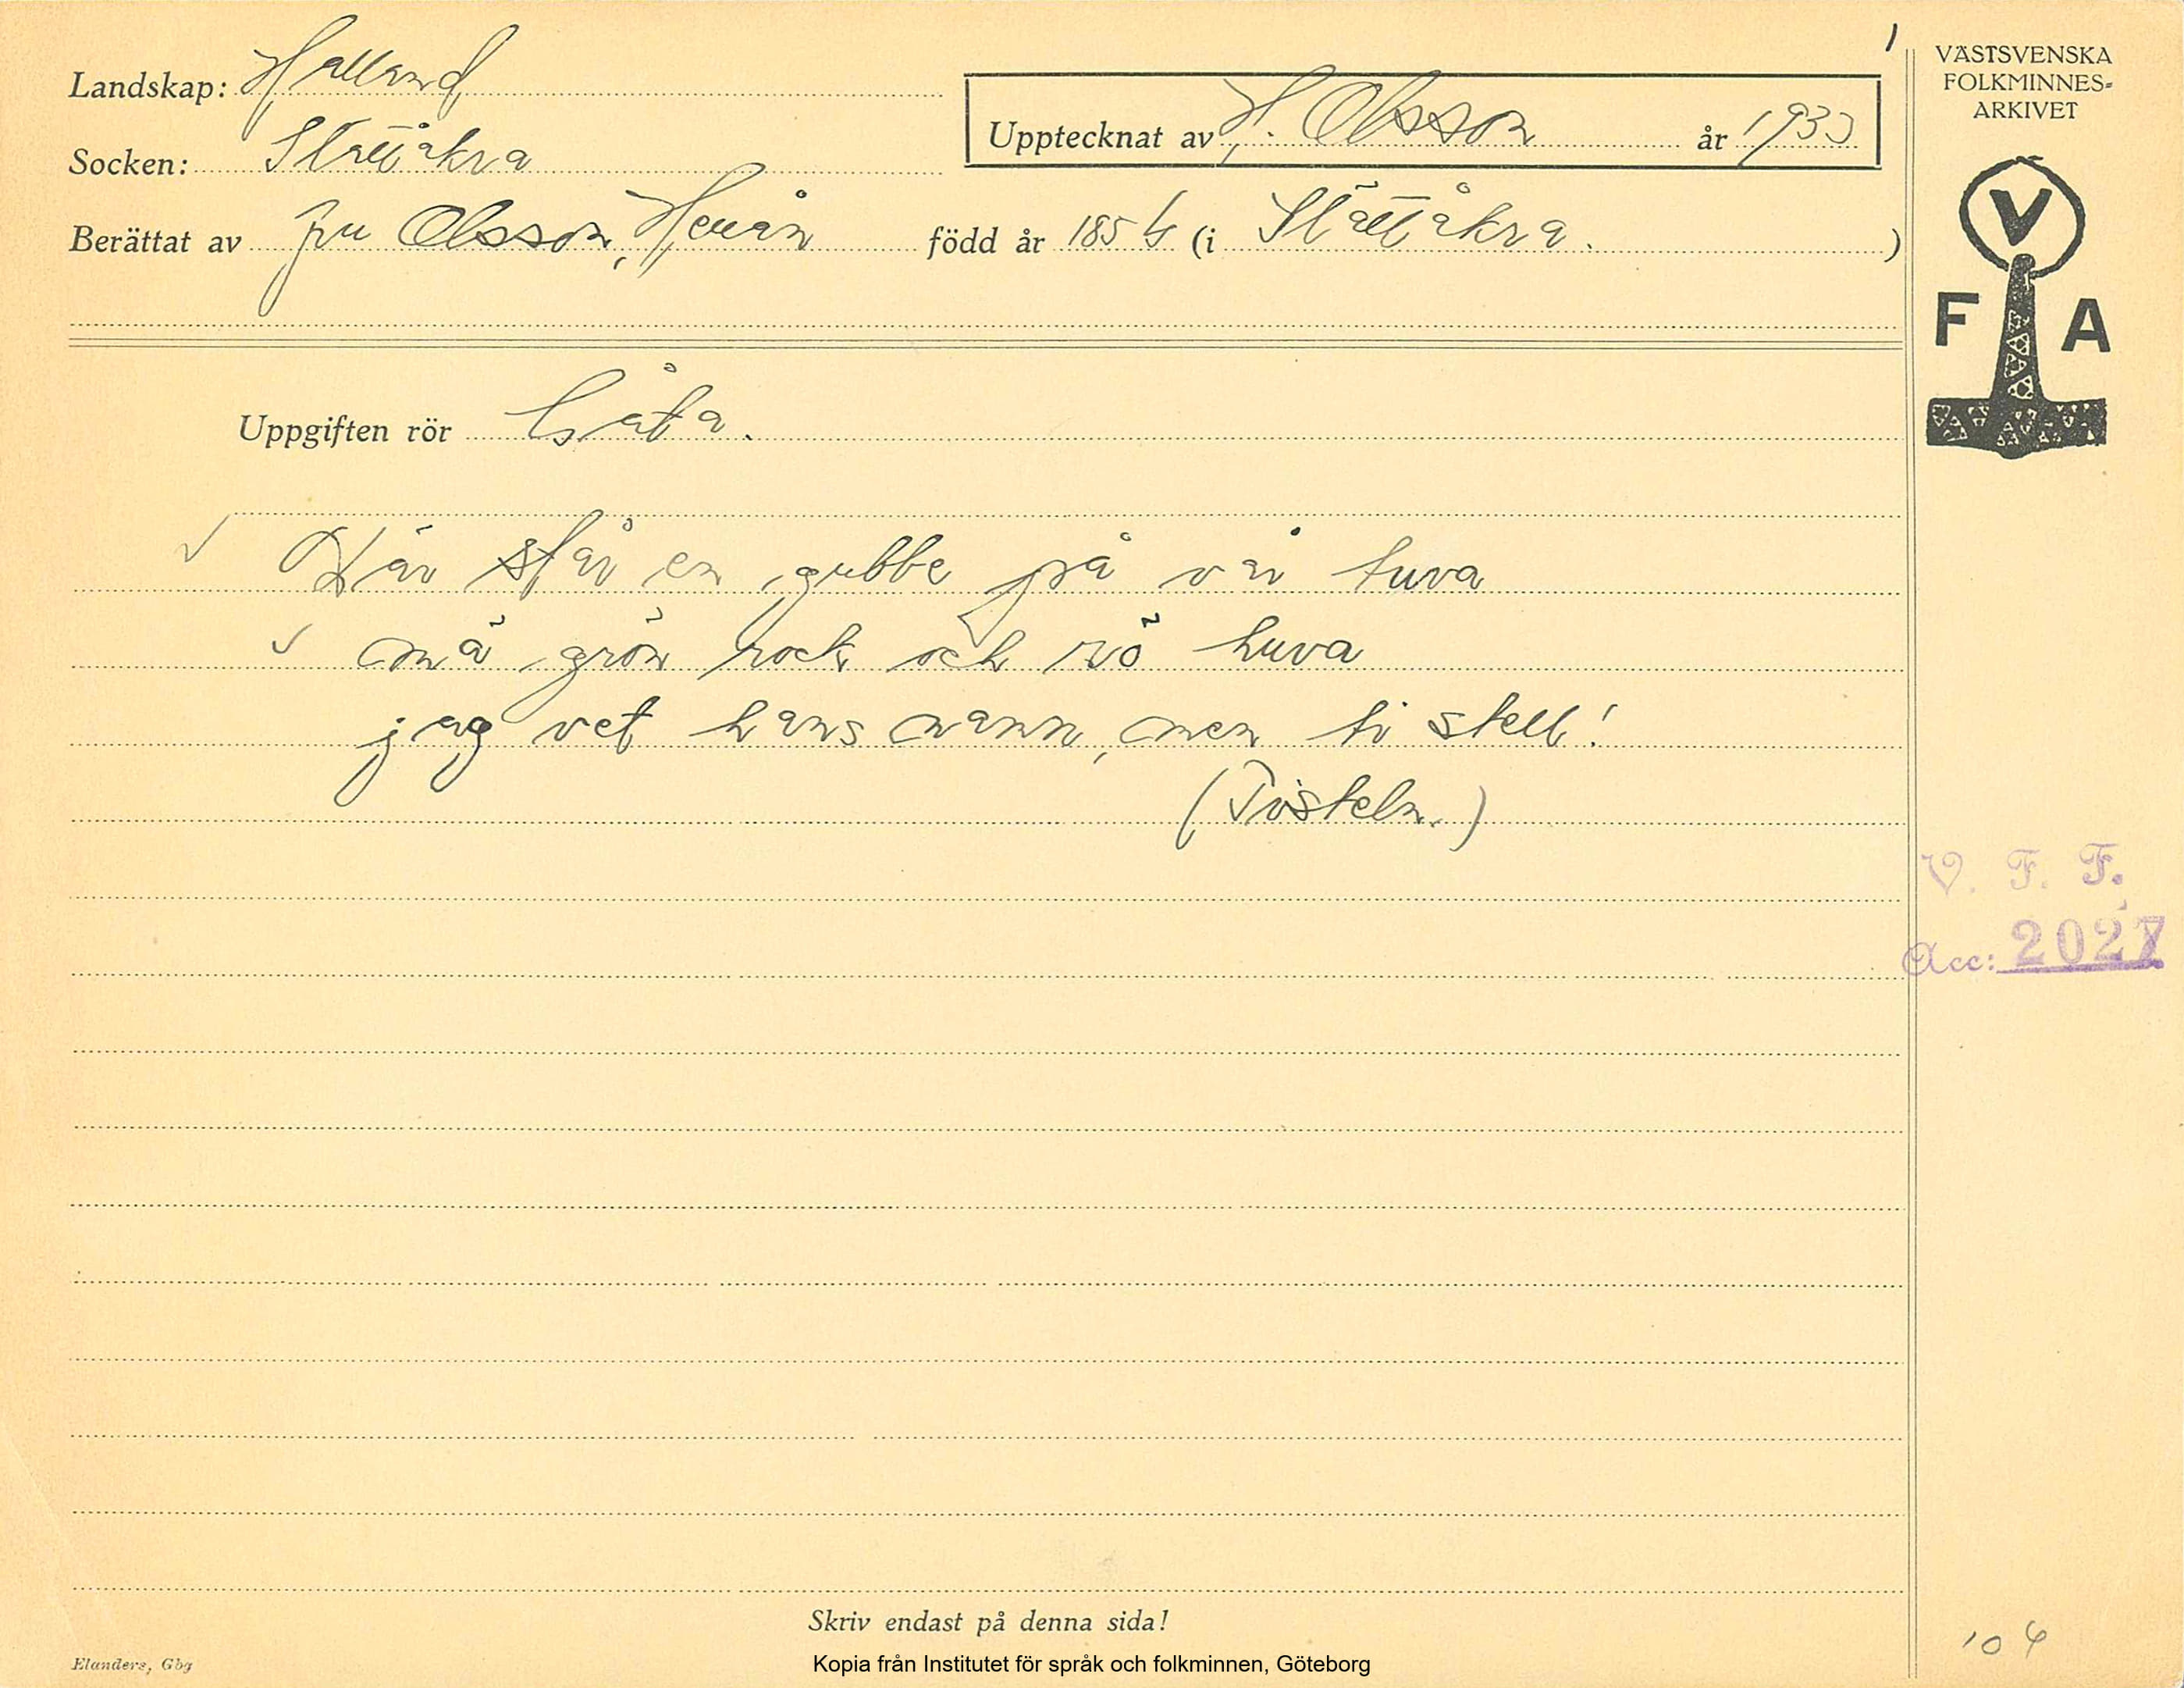 Landskap: Halland
Socken: Slättåkra
Upptecknat av H. Olsson år 1933
Berättat av fru Olsson, född år 1856 (i Slättåkra.)
Uppgiften rör Gåta.
Där står en gubbe på vår tuva
mä grön rock och rö huva
jag vet hans namn, men ti stell!
(Tisteln.)
Skriv endast på denna sida!
Elanders, Gbg
Kopia från Institutet för språk och folkminnen, Göteborg
VÄSTSVENSKA
FOLKMINNES-
ARKIVET
V
F A
V. F. F.
Acc: 2027